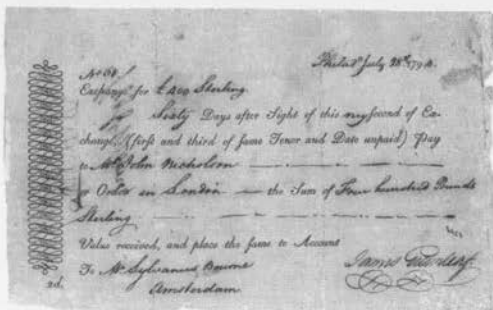 Philad.ª July 28th 1794.
No 60
Exchange for £400 Sterling.
Sixty Days after Sight of this my Second of Ex-
change, (first and third of same Tenor and Date unpaid) Pay
to Mr John Nicholson
or Order in London — the Sum of Four hundred Pounds
Sterling
Value received, and place the same to Account
To Mr Sylvanus Bourne
Amsterdam.
James Greenleaf
2d.